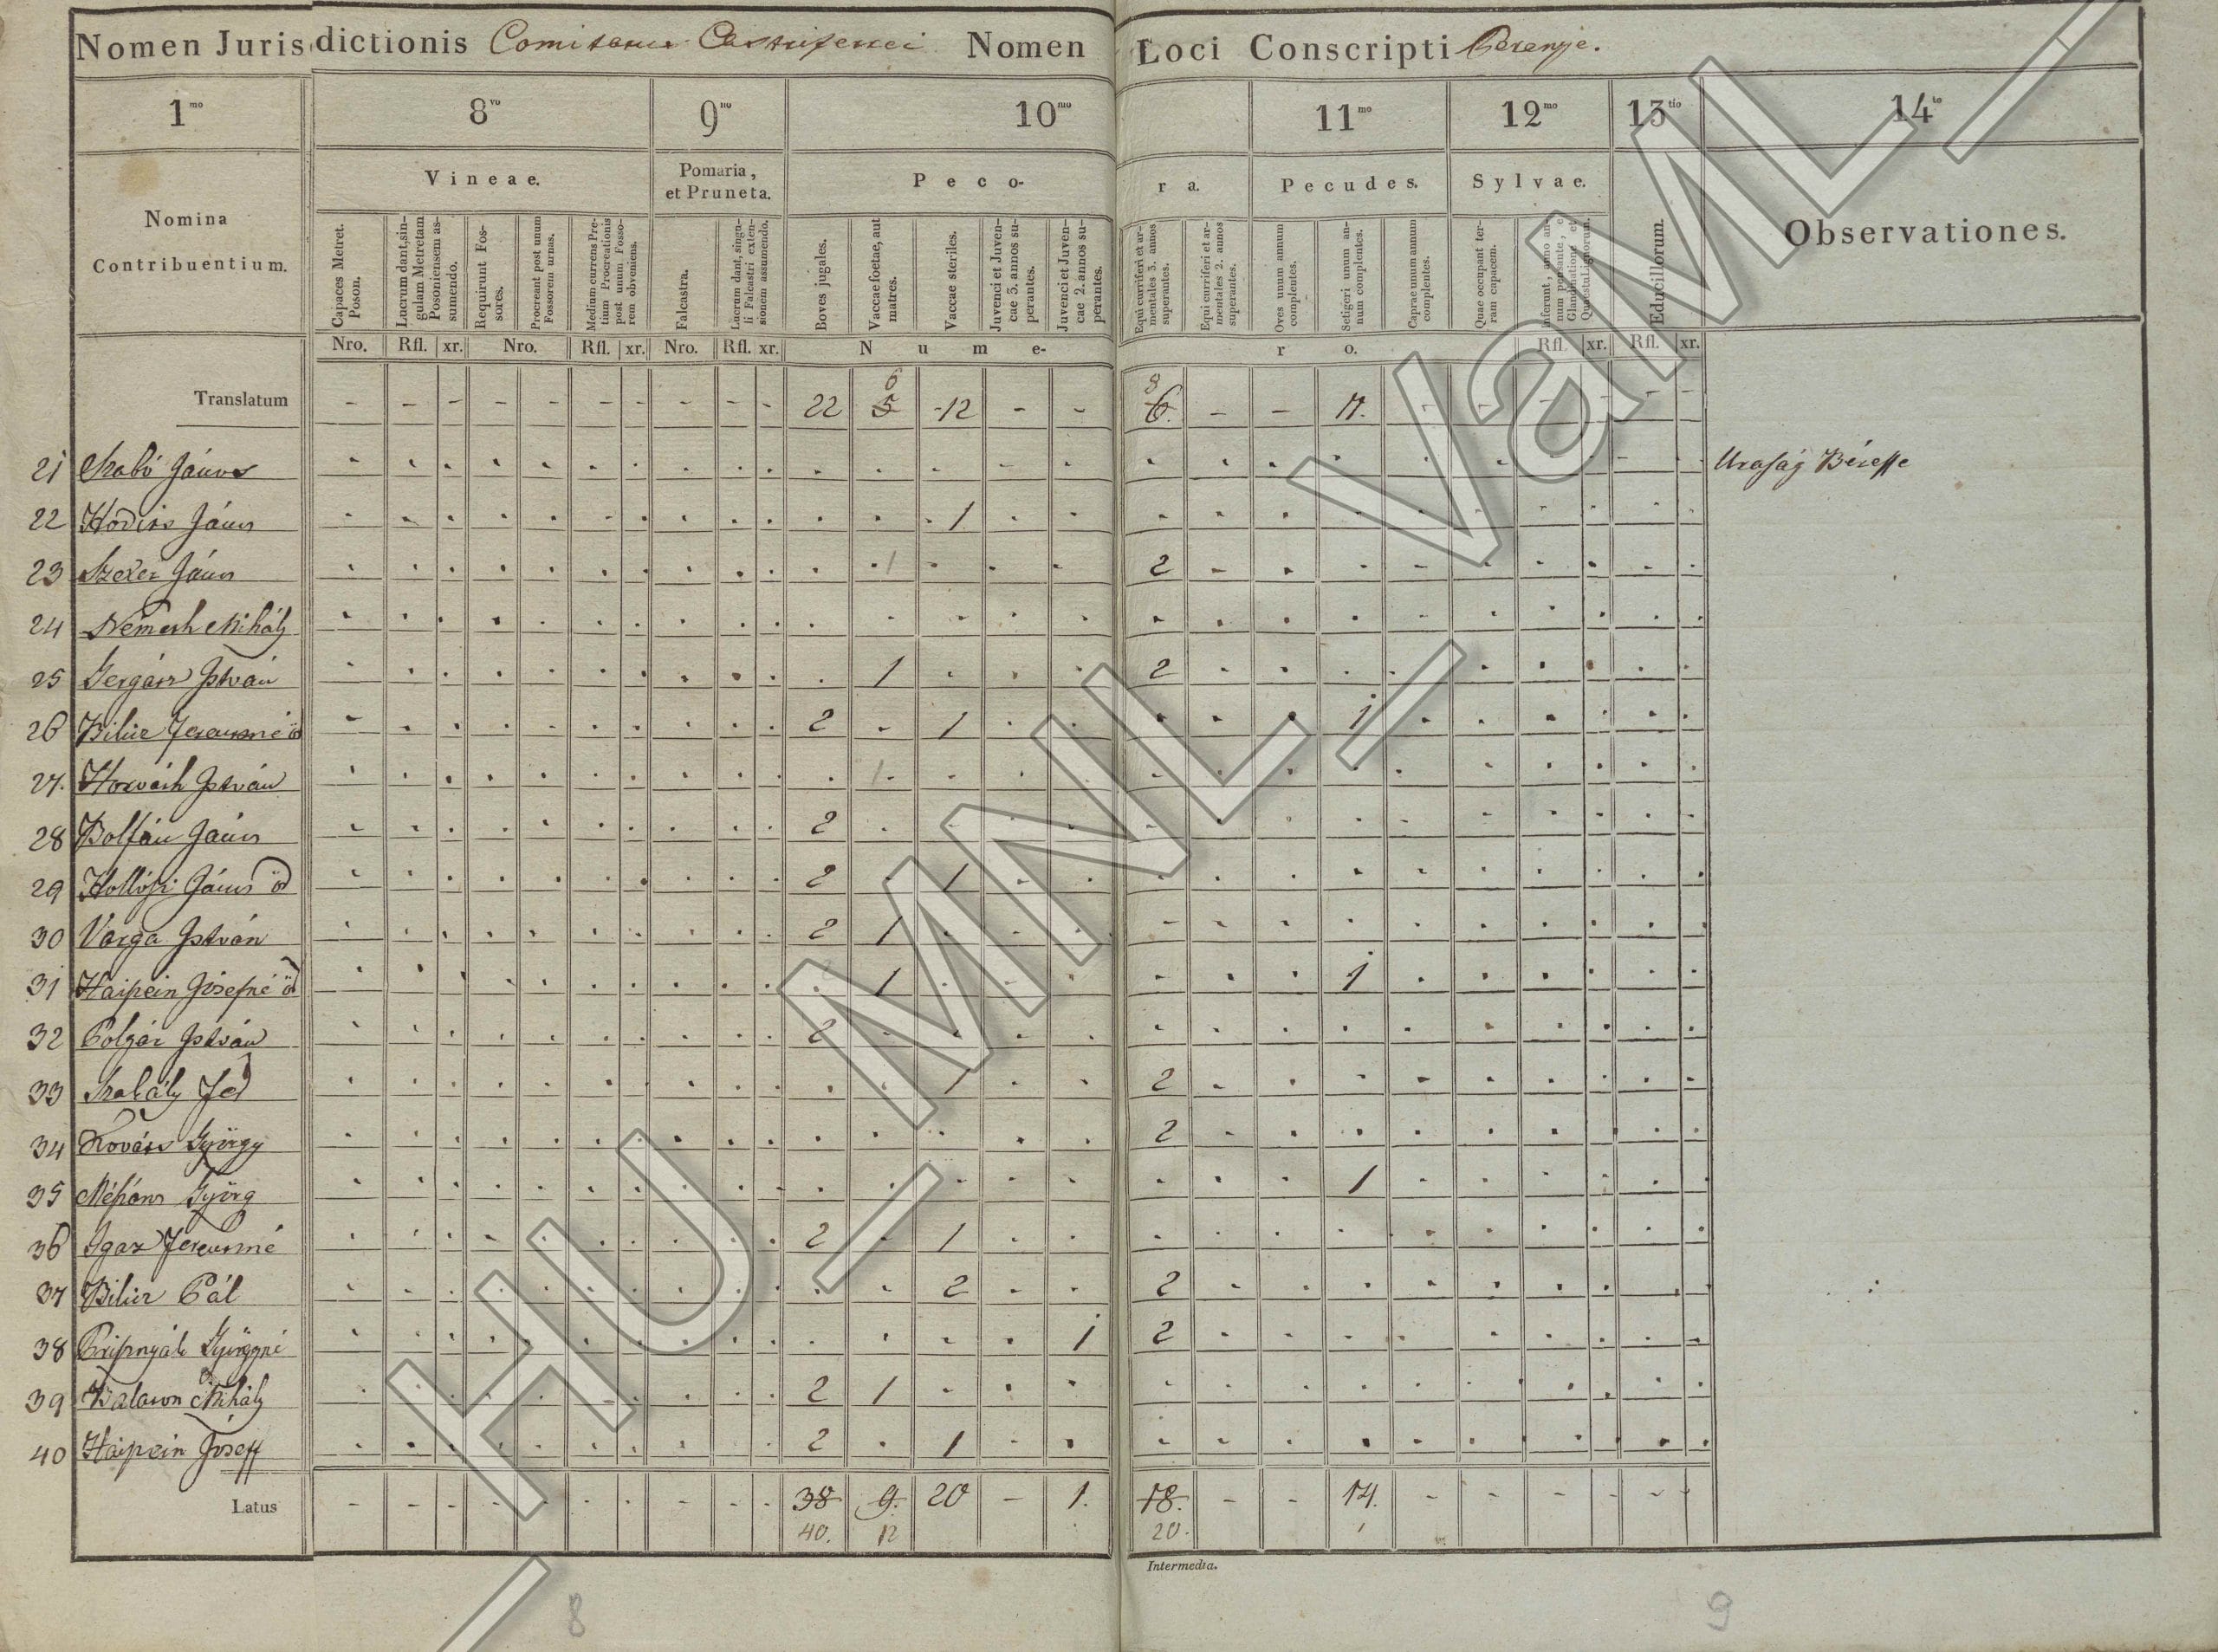 Nomen Jurisdictionis Comitatus Castriferrei Nomen Loci Conscripti Perenye.
1mo 8vo 9no 10mo 11mo 12mo 13tio 14to
Nomina Contribuentium.
Vineae.
Pomaria, et Pruneta.
Peco-
ra.
Pecudes.
Sylvae.
Educillorum.
Observationes.
Capaces Metret. Poson.
Lucrum dant, singulam Metretam Posoniensem assumendo.
Requirunt Fossores.
Procreant post unum Fossorem urnas.
Medium currens Pretium Procreationis post unum Fossorem obveniens.
Falcastra.
Lucrum dant, singuli Falcastri extensionem assumendo.
Boves jugales.
Vaccae foetae, aut matres.
Vaccae steriles.
Juvenci et Juvencae 3. annos superantes.
Juvenci et Juvencae 2. annos superantes.
Equi curriferi et armentales 3. annos superantes.
Equi curriferi et armentales 2. annos superantes.
Oves unum annum complentes.
Setigeri unum annum complentes.
Caprae unum annum complentes.
Quae occupant terram capacem.
Nro. Rfl. xr. Nro. Rfl. xr. Nro. Rfl. xr. Nume- ro. Rfl. xr. Rfl. xr.
Translatum - - - - - - - - - - 22 6 5 -12 - - 8 6. - - 11. - - - - - -
21 Szabó János Uraság Béresse
22 Hodics János 1
23 Szexer János 1 2
24 Németh Mihály
25 Gergácz István 1 2
26 Bilisz Ferencné öö 2 1 1
27. Horváth István 1
28 Bolfán János 2
29 Hollósi János öö 2 1
30 Varga István 2 1
31 Haipein Jósefné öö 1 1
32 Polgár István 2
33 Szabály Fer 1 2
34 Kovács György 2
35 György 1
36 Igaz Ferencné 2 1
37 Bilisz Pál 2 2
38 Györgyné 1 2
39 Balason Mihály 2 1
40 Haipein Jóseff 2 1
Latus - - - - - - - - - - 38 9. 20 - 1. 18. - - 14. - - - - - -
40. 12 20.
Intermedia.
8 9
HU_MNL_VaML_